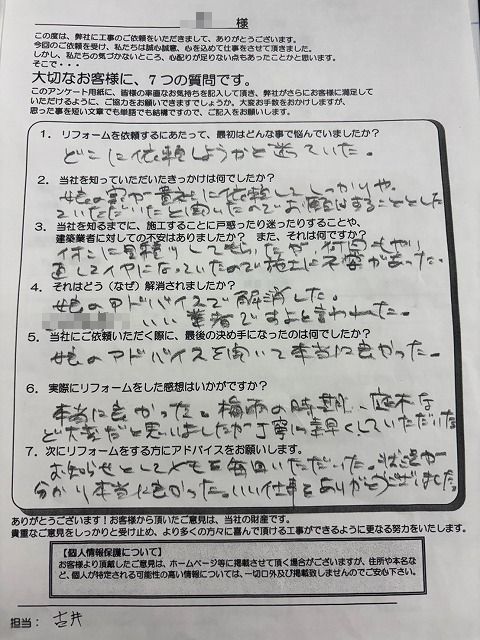 様
この度は、弊社に工事のご依頼をいただきまして、ありがとうございます。
今回のご依頼を受け、私たちは誠心誠意、心を込めて仕事をさせて頂きました。
しかし、私たちの気づかないところ、心配りが足りない点もあったことかと思います。
そこで・・・
大切なお客様に、７つの質問です。
このアンケート用紙に、皆様の率直なお気持ちを記入して頂き、弊社がさらにお客様に満足して
いただけるように、ご協力をお願いできますでしょうか。大変お手数をおかけしますが、
思った事を短い文章でも単語でも結構ですので、ご記入をお願いします。
1．リフォームを依頼するにあたって、最初はどんな事で悩んでいましたか？
どこに依頼しようかと迷っていた。
2．当社を知っていただいたきっかけは何でしたか？
娘の家が貴社に依頼してしっかりや
っていただいたと聞いたのでお願いすることとした
3．当社を知るまでに、施工することに戸惑ったり迷ったりすることや、
建築業者に対しての不安はありましたか？　また、それは何ですか？
見積りしてもらったが何回もやり
直してイヤになっていたので施工に不安があった。
4．それはどう（なぜ）解消されましたか？
娘のアドバイスで解消した。
いい業者ですよと言われた。
5．当社にご依頼いただく際に、最後の決め手になったのは何でしたか？
娘のアドバイスを聞いて本当に良かった。
6．実際にリフォームをした感想はいかがですか？
本当に良かった。梅雨の時期、庭木な
ど大変だと思いましたが丁寧に素早くしていただいた
7．次にリフォームをする方にアドバイスをお願いします。
お知らせとしてメモを毎回いただいた。状況が
分かり本当に良かった。いい仕事をありがとうございました。
ありがとうございます！お客様から頂いたご意見は、当社の財産です。
貴重なご意見をしっかりと受け止め、より多くの方々に喜んで頂ける工事ができるように更なる努力をいたします。
【個人情報保護について】
お客様より頂戴したご意見は、ホームページ等に掲載させて頂く場合がございますが、住所や本名な
ど、個人が特定される可能性の高い情報については、一切口外及び掲載致しませんのでご安心下さい。
担当：古井